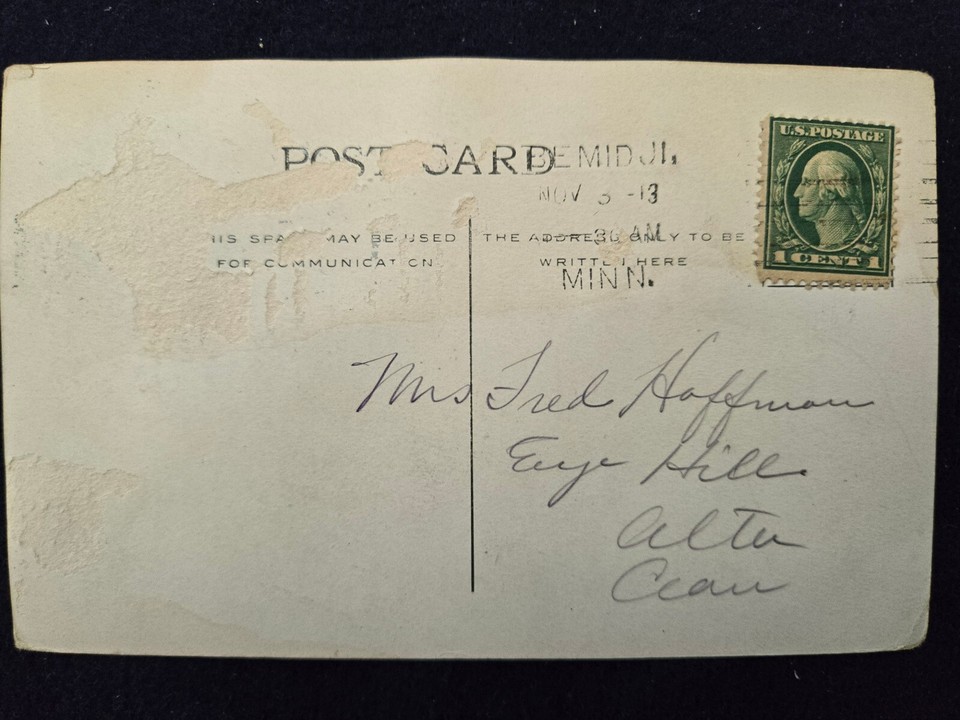 POST CARD
BEMIDJI,
NOV 3 -13
30 AM
MINN.
U.S. POSTAGE
1 CENT 1
HIS SPA MAY BE USED
FOR COMMUNICATION
THE ADDRESS ONLY TO BE
WRITTEN HERE
Mrs Fred Hoffman
Hill
Alta
Can